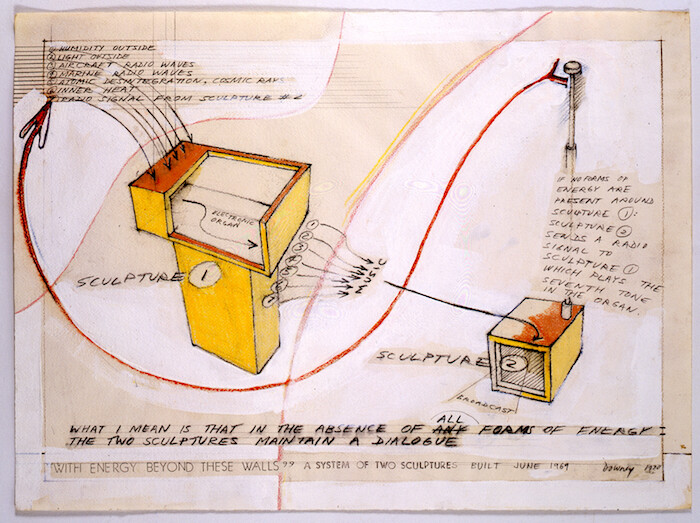 ① HUMIDITY OUTSIDE
② LIGHT OUTSIDE
③ AIRCRAFT RADIO WAVES
④ MARINE RADIO WAVES
⑤ ATOMIC DESINTEGRATION, COSMIC RAYS
⑥ INNER HEAT
⑦ RADIO SIGNAL FROM SCULPTURE #2
ELECTRONIC
ORGAN
SCULPTURE ①
MUSIC
IF NO FORMS OF
ENERGY ARE
PRESENT AROUND
SCULPTURE ①:
SCULPTURE ②
SENDS A RADIO
SIGNAL TO
SCULPTURE ①
WHICH PLAYS THE
SEVENTH TONE
IN THE ORGAN.
SCULPTURE ②
BROADCAST
ALL
WHAT I MEAN IS THAT IN THE ABSENCE OF ANY FORMS OF ENERGY:
THE TWO SCULPTURES MAINTAIN A DIALOGUE
"WITH ENERGY BEYOND THESE WALLS" A SYSTEM OF TWO SCULPTURES BUILT JUNE 1969 Downey 1970